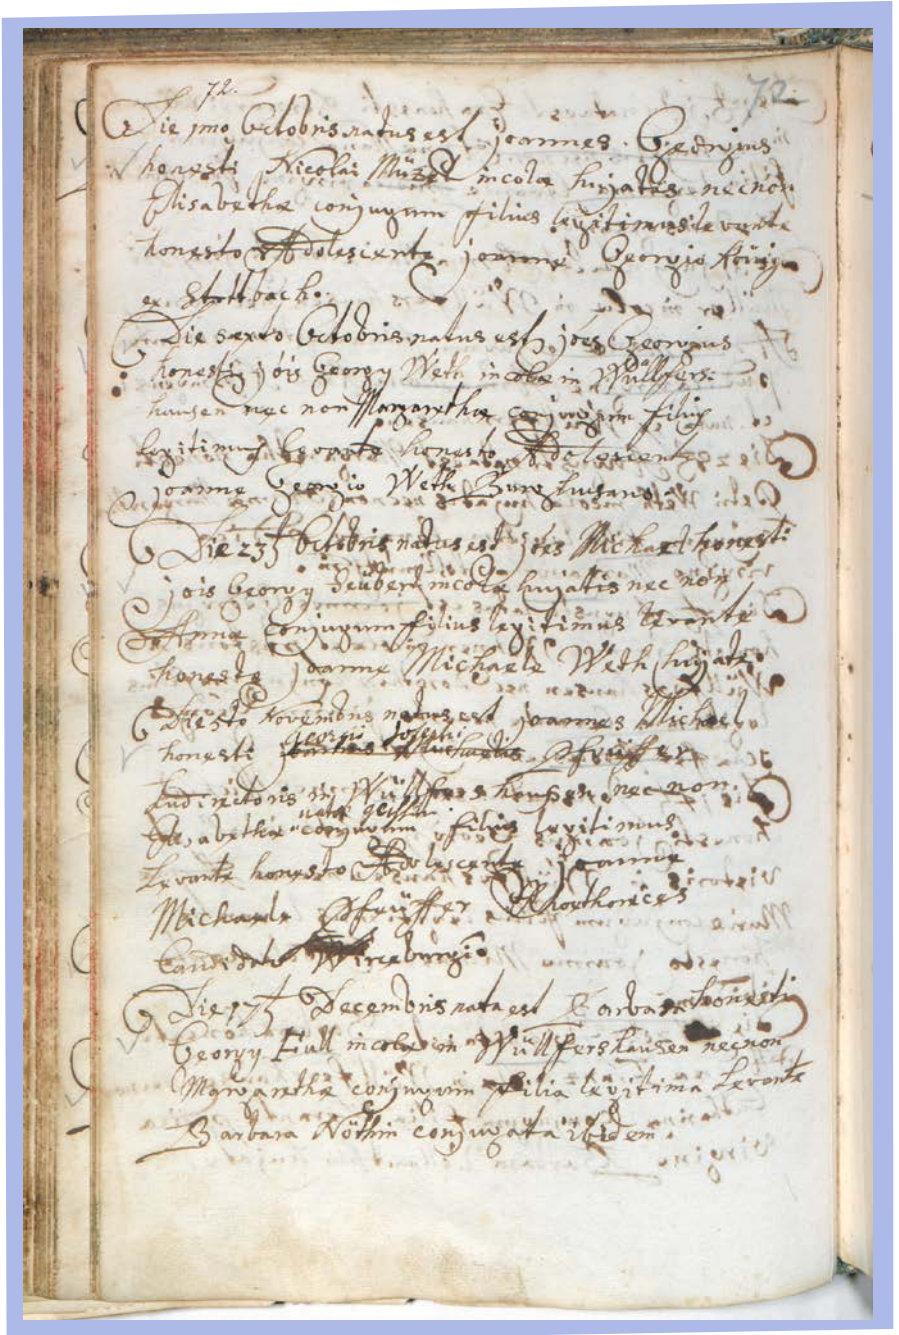 72.
72
Die 1mo Octobris natus est Joannes Georgius
honesti Nicolai Müzel incolæ hujatis necnon
Elisabethæ conjugum filius legitimus levante
honesto Adolescente Joanne Georgio
ex Stottbach.
Die sexto Octobris natus est jões Georgius
honesti jõis Georgy Weth incolæ in Wüllfers-
hausen nec non Margarethæ conjugum filius
legitimus levante honesto Adolescente
Joanne Georgio Weth
Die 23 Octobris natus est jões Michael honesti
jõis Georgy Deübert incolæ hujatis nec non
Annæ conjugum filius legitimus levante
honesto Joanne Michaele Weth hujate.
Die Novembris natus est Joannes Michael
georgii josephi
honesti Michaelis Pfeüffer
Ludirectoris in Wüllfershausen nec non
Elisabethæ conjugum filius legitimus
levante honesto Adolescente Joanne
Michaele Pfeüffer Rhethorices
Candidato Wirceburgi.
Die 17 Decembris nata est Barbara honesti
Georgy Füll incolæ in Wüllfershausen necnon
Margarethæ conjugum filia legitima levante
Barbara Nöthin conjugata ibidem.